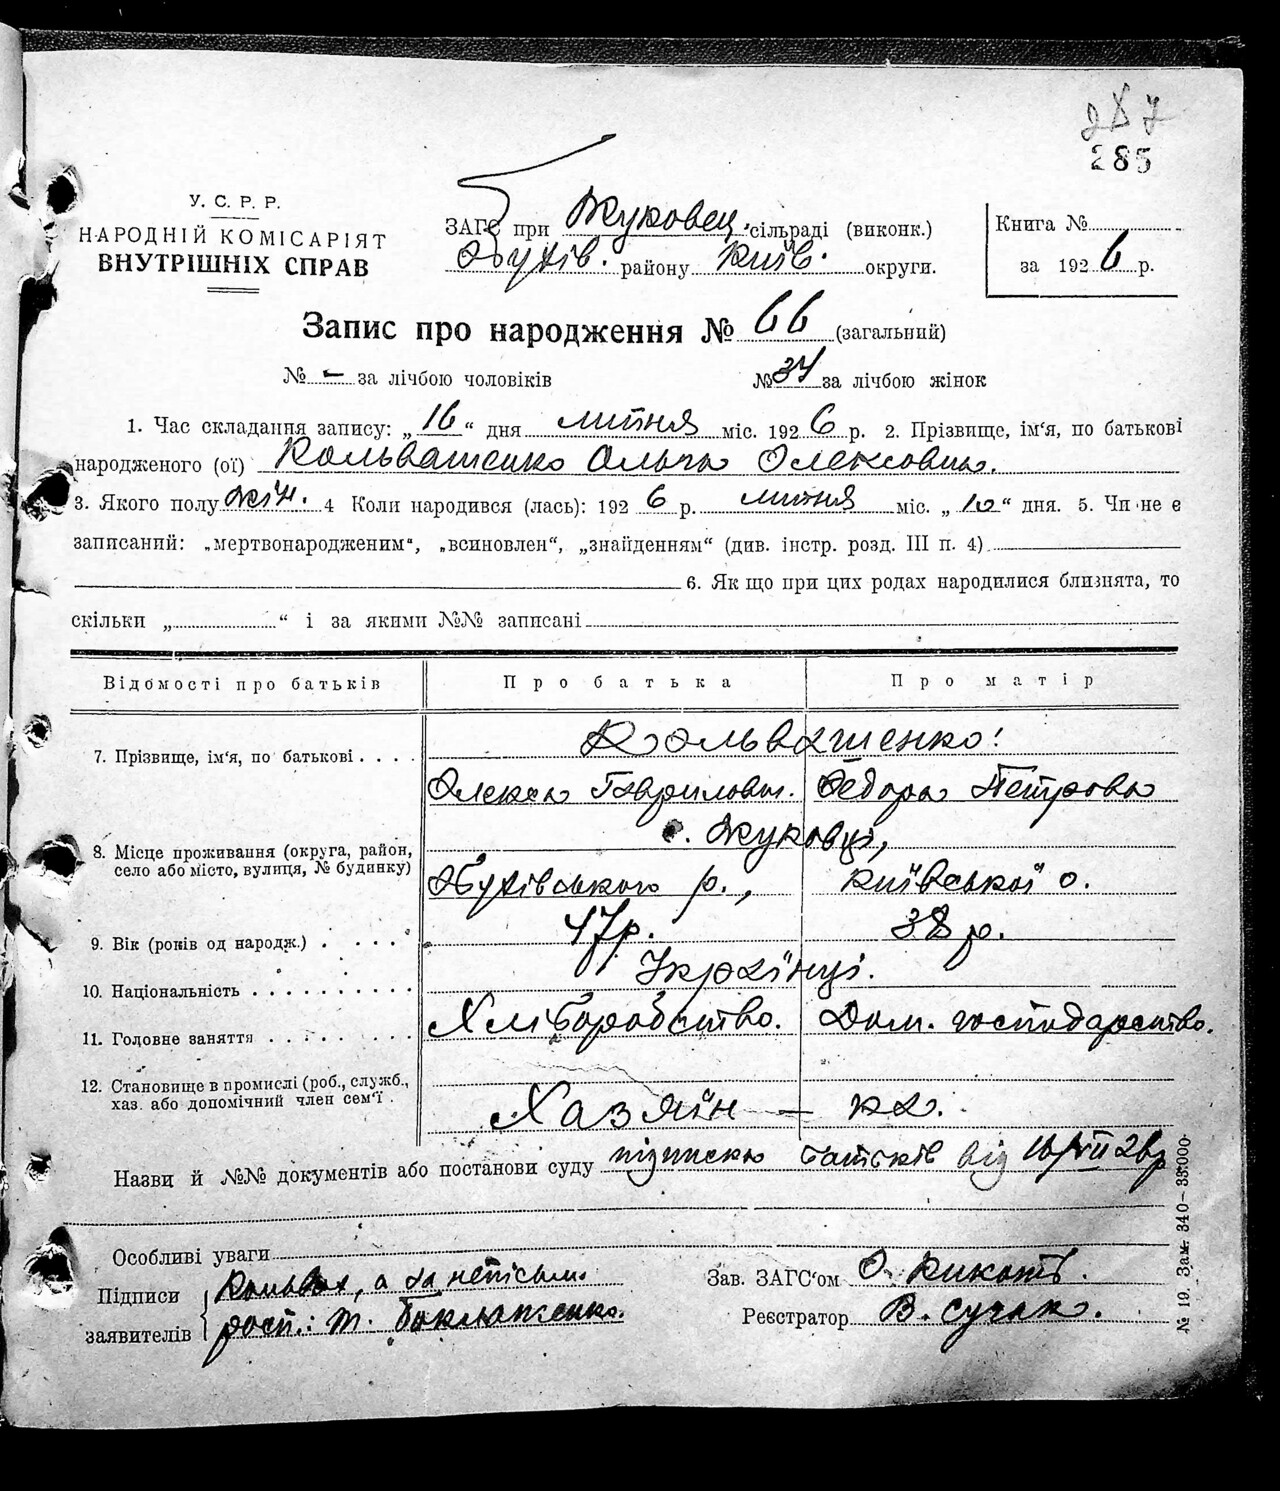 287
285
У. С. Р. Р.
НАРОДНІЙ КОМІСАРІЯТ
ВНУТРІШНІХ СПРАВ
ЗАГС при Жуковец. сільраді (виконк.)
Обухів. району Київ. округи.
Книга №
за 1926 р.
Запис про народження № 66 (загальний)
№ - за лічбою чоловіків № 34 за лічбою жінок
1. Час складання запису: „16“ дня липня міс. 1926 р. 2. Прізвище, ім‘я, по батькові
народженого (ої) Кольвашенко Ольга Олексовна.
3. Якого полу жін. 4 Коли народився (лась): 1926 р. липня міс. „10“ дня. 5. Чи не є
записаний: „мертвонародженим“, „всиновлен“, „знайденням“ (див. інстр. розд. III п. 4)
6. Як що при цих родах народилися близнята, то
скільки „ “ і за якими №№ записані
Відомості про батьків Про батька Про матір
7. Прізвище, ім‘я, по батькові . . . . Кольвашенко:
Олекса Гаврилович. Федора Петровна
8. Місце проживання (округа, район, село або місто, вулиця, № будинку) с. Жуковці,
Обухівського р., Київської о.
9. Вік (років од народж.) . . . . . 47р. 38 р.
10. Національність . . . . . . . . . . Українці.
11. Головне заняття . . . . . . . . . Хліборобство. Дом. господарство.
12. Становище в промислі (роб., служб.,
хаз. або допомічний член сем‘ї . Хазяїн — ка.
Назви й №№ документів або постанови суду підписко батьків від 16/VII 26р
Особливі уваги
Підписи заявителів Кольваш, а за неписьм.
росп.: Т. Баклаженко.
Зав. ЗАГС‘ом О. Кикоть.
Реєстратор В. Сучак.
№ 19. Зам. 340—33.000